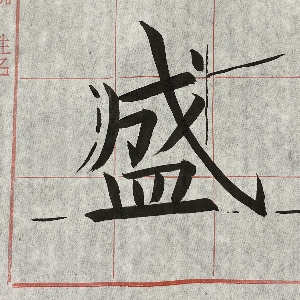 盛
姓名